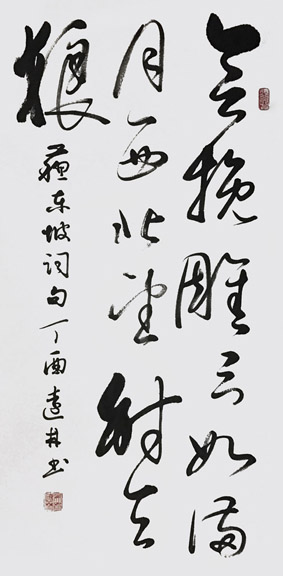 会挽雕弓如满
月西北望射天
狼
蘇东坡词句丁酉 书